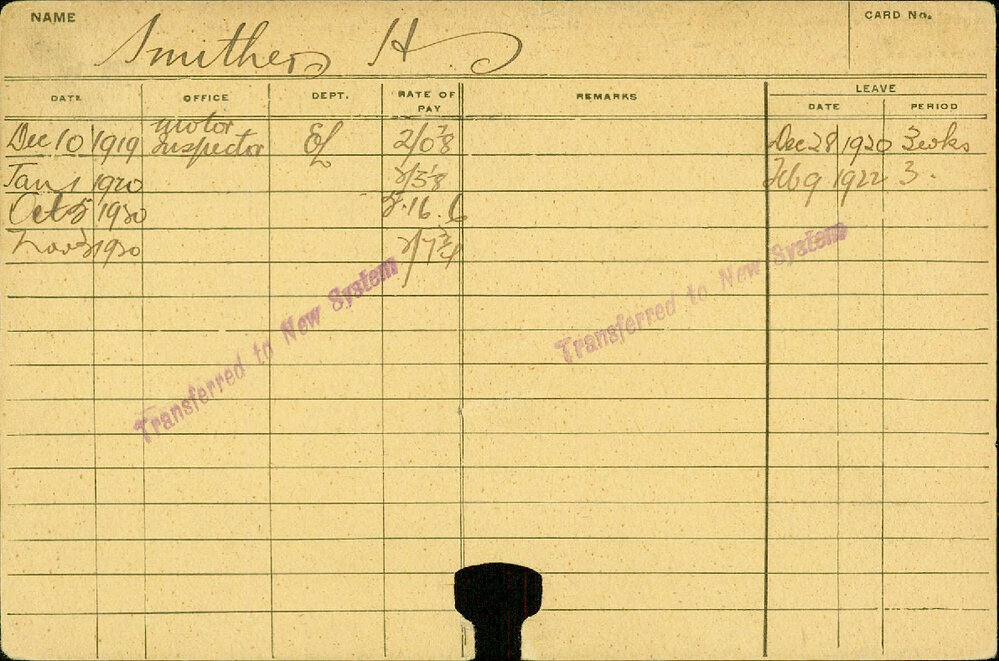 NAME Smithers H CARD No.
DATE OFFICE DEPT. RATE OF PAY REMARKS LEAVE DATE PERIOD
Dec 10 1919 Motor Inspector EL 2/0 7/8 Dec 28 1920 3 wks
Jan 1 1920 Feb 9 1922 3.
Oct 5 1920 5.16.6
Nov 1920 2/7 3/4
Transferred to New System
Transferred to New System